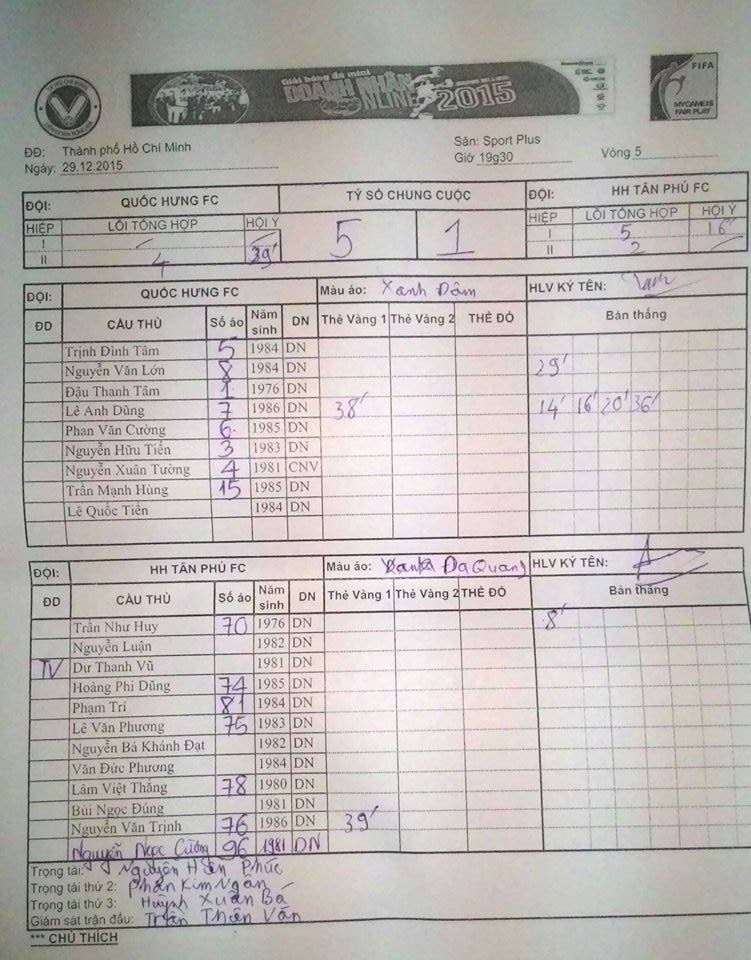 Giải bóng đá mini
DOANH NHÂN
ONLINE 2015
FIFA
MY GAME IS
FAIR PLAY
ĐĐ: Thành phố Hồ Chí Minh Sân: Sport Plus
Ngày: 29.12.2015 Giờ 19g30 Vòng 5
ĐỘI: QUỐC HƯNG FC TỶ SỐ CHUNG CUỘC ĐỘI: HH TÂN PHÚ FC
HIỆP LỖI TỔNG HỢP HỘI Ý 5 1 HIỆP LỖI TỔNG HỢP HỘI Ý
I I 5 16'
II 4 39' II 2
ĐỘI: QUỐC HƯNG FC Màu áo: Xanh Dậm HLV KÝ TÊN:
ĐD CẦU THỦ Số áo Năm sinh DN Thẻ Vàng 1 Thẻ Vàng 2 THẺ ĐỎ Bàn thắng
Trịnh Đình Tâm 5 1984 DN
Nguyễn Văn Lớn 8 1984 DN 29'
Đậu Thanh Tâm 1 1976 DN
Lê Anh Dũng 7 1986 DN 38' 14' 16' 20' 36'
Phan Văn Cường 6 1985 DN
Nguyễn Hữu Tiến 3 1983 DN
Nguyễn Xuân Tường 4 1981 CNV
Trần Mạnh Hùng 15 1985 DN
Lê Quốc Tiến 1984 DN
ĐỘI: HH TÂN PHÚ FC Màu áo: Dạ Quang HLV KÝ TÊN:
ĐD CẦU THỦ Số áo Năm sinh DN Thẻ Vàng 1 Thẻ Vàng 2 THẺ ĐỎ Bàn thắng
Trần Như Huy 70 1976 DN 8'
Nguyễn Luận 1982 DN
TV Dư Thanh Vũ 1981 DN
Hoàng Phi Dũng 74 1985 DN
Phạm Trí 81 1984 DN
Lê Văn Phương 75 1983 DN
Nguyễn Bá Khánh Đạt 1982 DN
Văn Đức Phương 1984 DN
Lâm Việt Thắng 78 1980 DN
Bùi Ngọc Đúng 1981 DN
Nguyễn Văn Trịnh 76 1986 DN 39'
Nguyễn Ngọc Cường 96 1981 DN
Trọng tài: Nguyễn Hiền Phúc
Trọng tài thứ 2: Phan Kim Ngân
Trọng tài thứ 3: Huỳnh Xuân Bá
Giám sát trận đấu: Trần Thiên Văn
*** CHÚ THÍCH